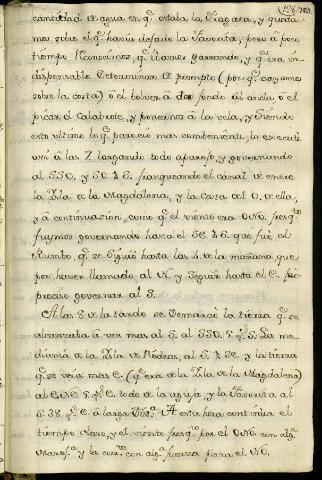 (126) 183.
cantidad de agua en q.e estaba la Fragata, y queda-
mos sobre el q.e havia dejado la Favorita, pero à poco
tiempo Reconocimos, q.e ibamos garrando, y q.e era in-
dispensable determinar de prompto (por q.e cayamos
sobre la costa) ò el bolver à dar fondo al ancla, ò el
picar el Calabrote, y ponernos à la vela, y siendo
esto ultimo lo q.e pareciò mas combeniente, lo executè
asi à las 7 largando todo aparejo, y governando
al SSO, y SO. 1/4 S. franqueando el canal de entre
la Isla de la Magdalena, y la Costa del O. de ella,
y à continuacion, como q.e el viento era ONO. fresq.to
fuymos governando hasta el SE. 1/4 S. que fuè el
Rumbo q.e se siguiò hasta las 4. de la mañana que
por haver llamado al N. y seguir hasta el E. fuè
preciso governar al S.
A las 8 de la tarde se demarcò la tierra q.e se
alcanzaba à ver mas al S. al SSO. 5.º S. La me-
diania de la Isla de Pedras, al S. 1/4 SE. y la tierra
q.e se veìa mas E. (q.e era de la Isla de la Magdalena)
al E. 1/4 SE. 5.º E. todo de la aguja, y la Favorita al
S. 38.º E. à larga Dist.a A esta hora continùa el
tiempo claro, y el viento fresq.to por el ONO con alg.a
Marej.a y la corr.te con alg.a fuerza para el NO.